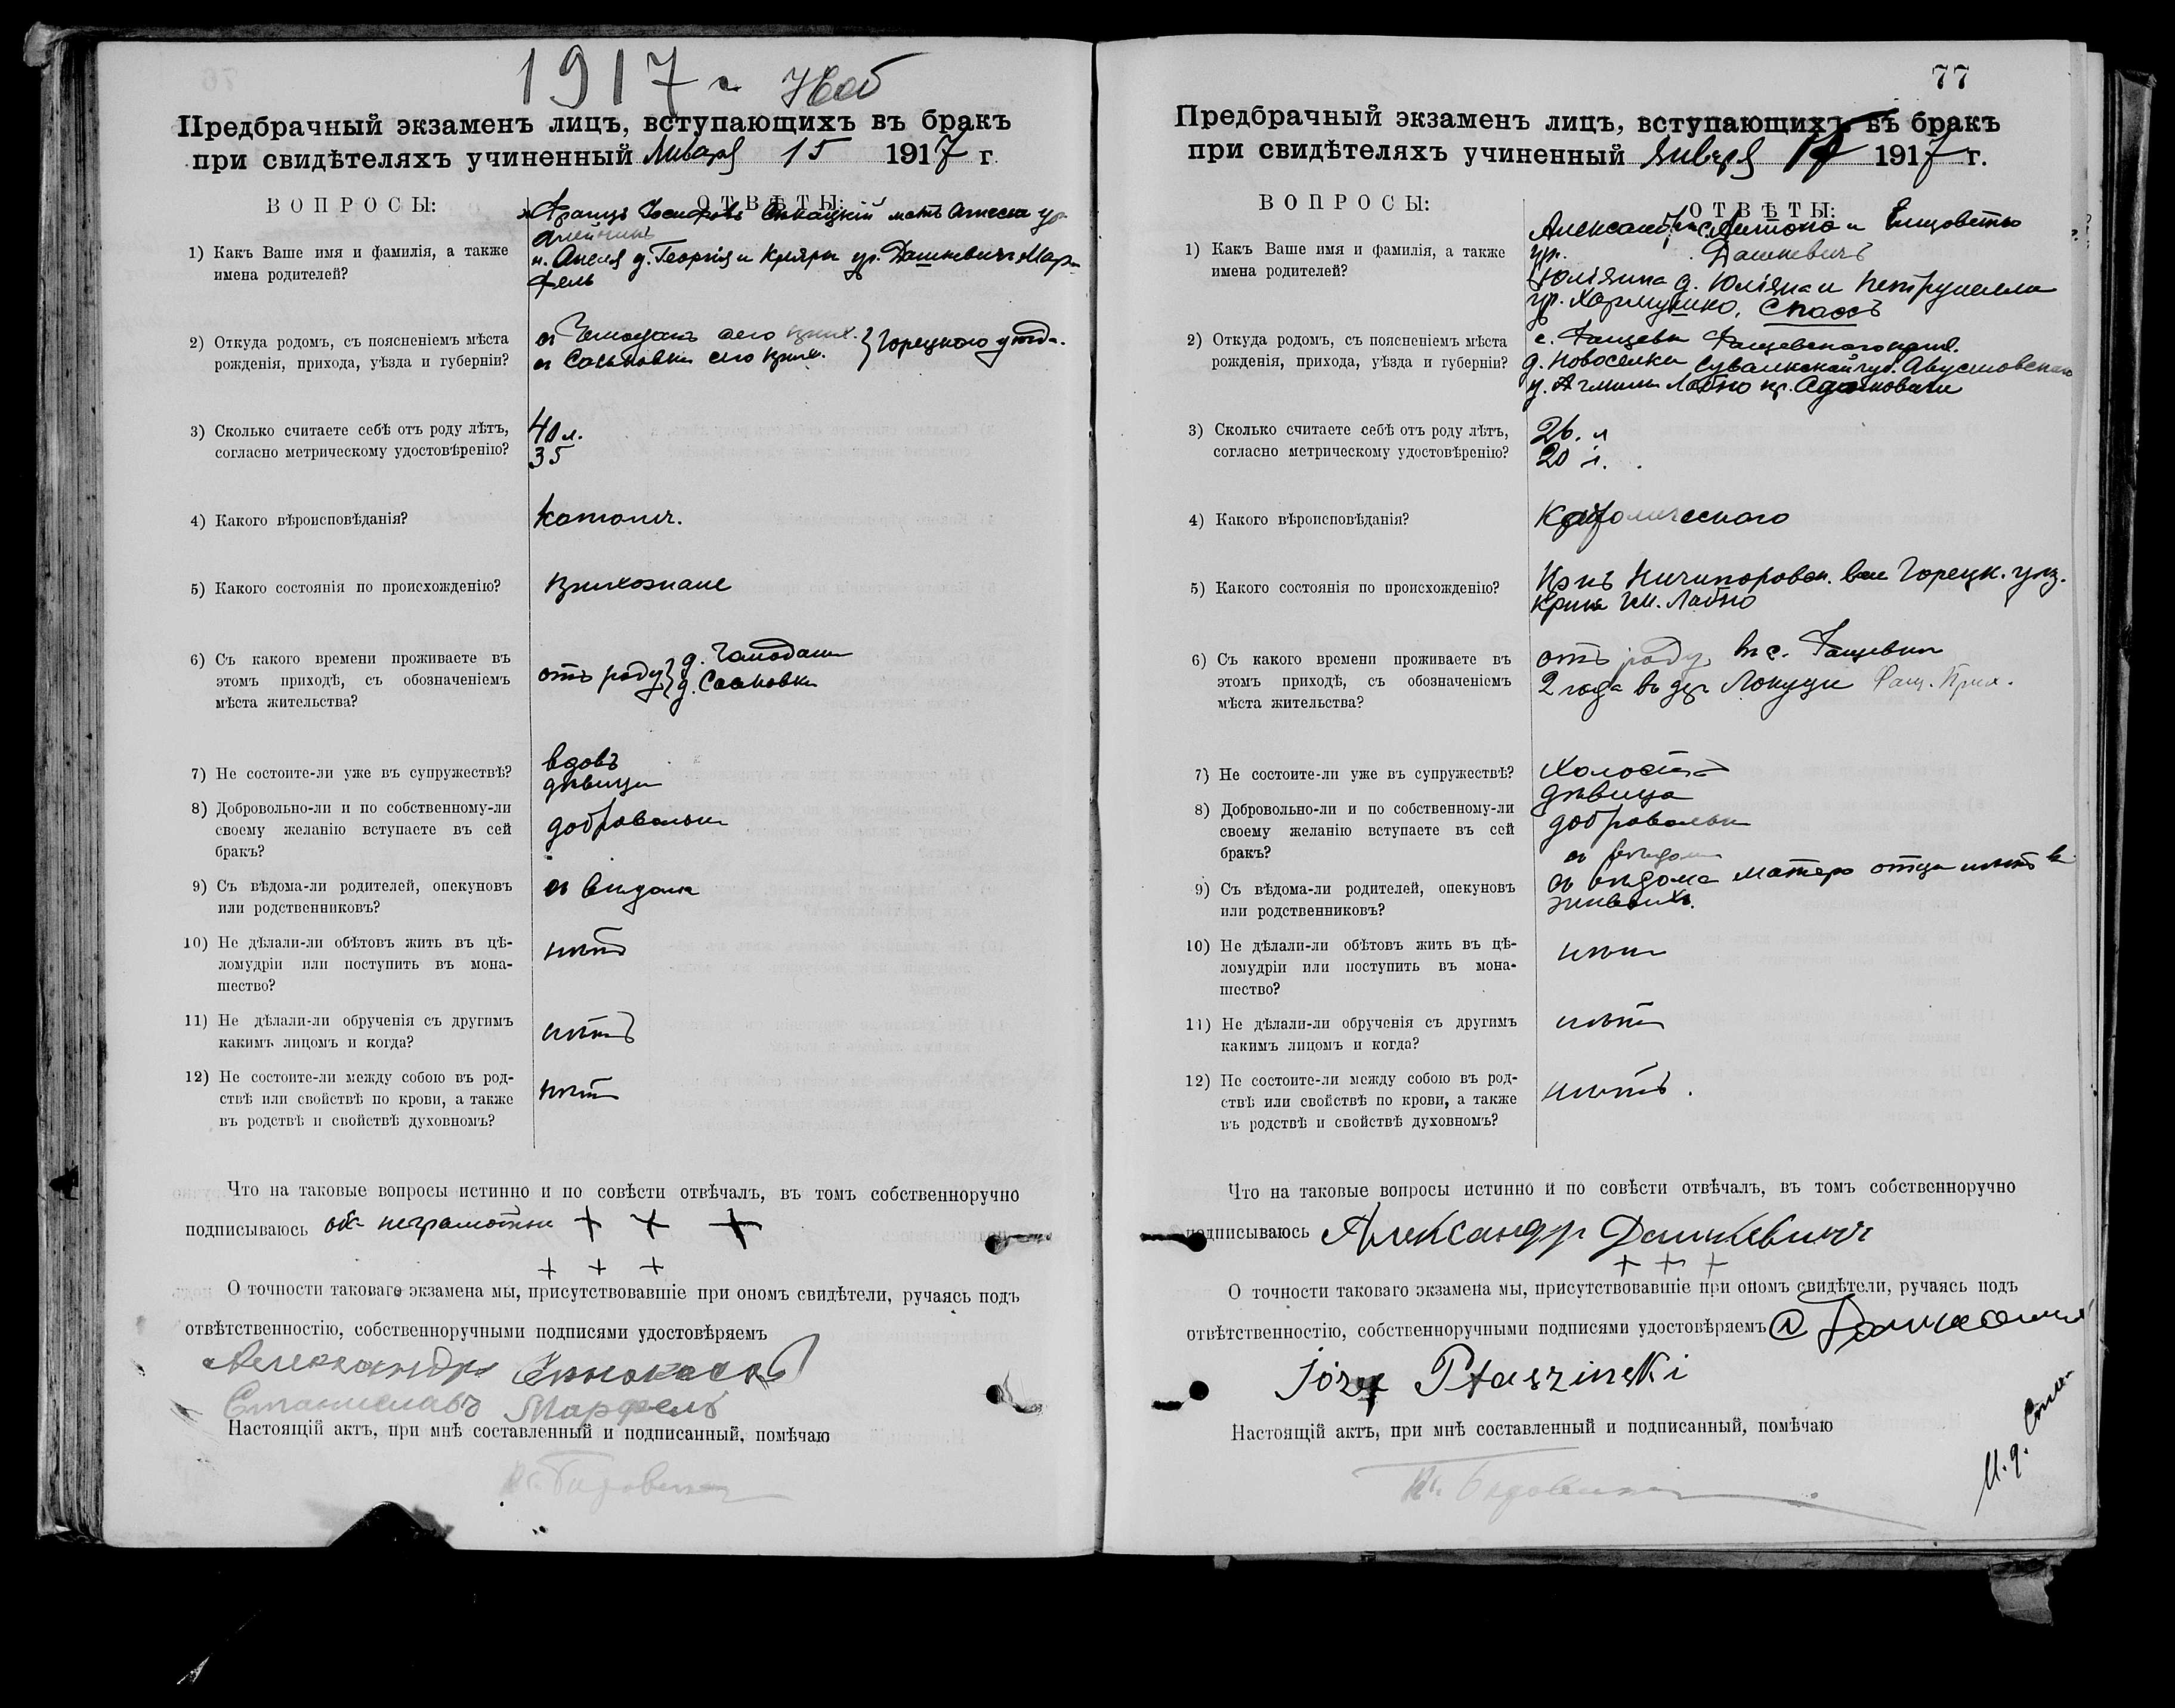 1917 г.
Предбрачный экзаменъ лицъ, вступающихъ въ бракъ
при свидѣтеляхъ учиненный Января 15 1917 г.
ВОПРОСЫ:
ОТВѢТЫ:
1) Какъ Ваше имя и фамилія, а также
имена родителей?
Францъ Іосифовъ мать Агнесса ур.
и Анеля д. Георгія и Клары ур. Дашкевичъ Мар-
фель
2) Откуда родомъ, съ поясненіемъ мѣста
рожденія, прихода, уѣзда и губерніи?
сего прих.
сего прих. } Горецкого уѣзда.
3) Сколько считаете себѣ отъ роду лѣтъ,
согласно метрическому удостовѣренію?
40 л.
35
4) Какого вѣроисповѣданія?
Католич.
5) Какого состоянія по происхожденію?
6) Съ какого времени проживаете въ
этомъ приходѣ, съ обозначеніемъ
мѣста жительства?
отъ роду } д. Чамодан
д. Сосновки
7) Не состоите-ли уже въ супружествѣ?
вдовъ
дѣвица
8) Добровольно-ли и по собственному-ли
своему желанію вступаете въ сей
бракъ?
добровольно
9) Съ вѣдома-ли родителей, опекуновъ
или родственниковъ?
съ вѣдома
10) Не дѣлали-ли обѣтовъ жить въ цѣ-
ломудріи или поступить въ мона-
шество?
нѣтъ
11) Не дѣлали-ли обрученія съ другимъ
какимъ лицомъ и когда?
нѣтъ
12) Не состоите-ли между собою въ род-
ствѣ или свойствѣ по крови, а также
въ родствѣ и свойствѣ духовномъ?
нѣтъ
Что на таковые вопросы истинно и по совѣсти отвѣчалъ, въ томъ собственноручно
подписываюсь оба неграмотны + + +
+ + +
О точности таковаго экзамена мы, присутствовавшіе при ономъ свидѣтели, ручаясь подъ
отвѣтственностію, собственноручными подписями удостовѣряемъ
Александръ
Станиславъ Марфель
Настоящій актъ, при мнѣ составленный и подписанный, помѣчаю
77
Предбрачный экзаменъ лицъ, вступающихъ въ бракъ
при свидѣтеляхъ учиненный Января 1917 г.
ВОПРОСЫ:
ОТВѢТЫ:
1) Какъ Ваше имя и фамилія, а также
имена родителей?
Александръ с. Антона и Елизаветы
ур. Дашкевичъ
Юліянна д. Юліяна и Петрунелли
ур.
2) Откуда родомъ, съ поясненіемъ мѣста
рожденія, прихода, уѣзда и губерніи?
с. Фащевки Фащевского прих.
д. Новоселки Сувалкской губ. Августовскаго
у. гмины Лабно
3) Сколько считаете себѣ отъ роду лѣтъ,
согласно метрическому удостовѣренію?
26. л
20 л.
4) Какого вѣроисповѣданія?
Католического
5) Какого состоянія по происхожденію?
Горецк. уѣз.
гм. Лабно
6) Съ какого времени проживаете въ
этомъ приходѣ, съ обозначеніемъ
мѣста жительства?
отъ роду въ с. Фащевки
2 года въ дер. Фащ. Прих.
7) Не состоите-ли уже въ супружествѣ?
Холостъ
дѣвица
8) Добровольно-ли и по собственному-ли
своему желанію вступаете въ сей
бракъ?
добровольно
9) Съ вѣдома-ли родителей, опекуновъ
или родственниковъ?
съ вѣдома
съ вѣдома матери отца нѣтъ в
живыхъ.
10) Не дѣлали-ли обѣтовъ жить въ цѣ-
ломудріи или поступить въ мона-
шество?
нѣтъ
11) Не дѣлали-ли обрученія съ другимъ
какимъ лицомъ и когда?
нѣтъ
12) Не состоите-ли между собою въ род-
ствѣ или свойствѣ по крови, а также
въ родствѣ и свойствѣ духовномъ?
нѣтъ.
Что на таковые вопросы истинно и по совѣсти отвѣчалъ, въ томъ собственноручно
подписываюсь Александръ Дашкевичъ
+ + +
О точности таковаго экзамена мы, присутствовавшіе при ономъ свидѣтели, ручаясь подъ
отвѣтственностію, собственноручными подписями удостовѣряемъ
Józef Ptaszinski
Настоящій актъ, при мнѣ составленный и подписанный, помѣчаю